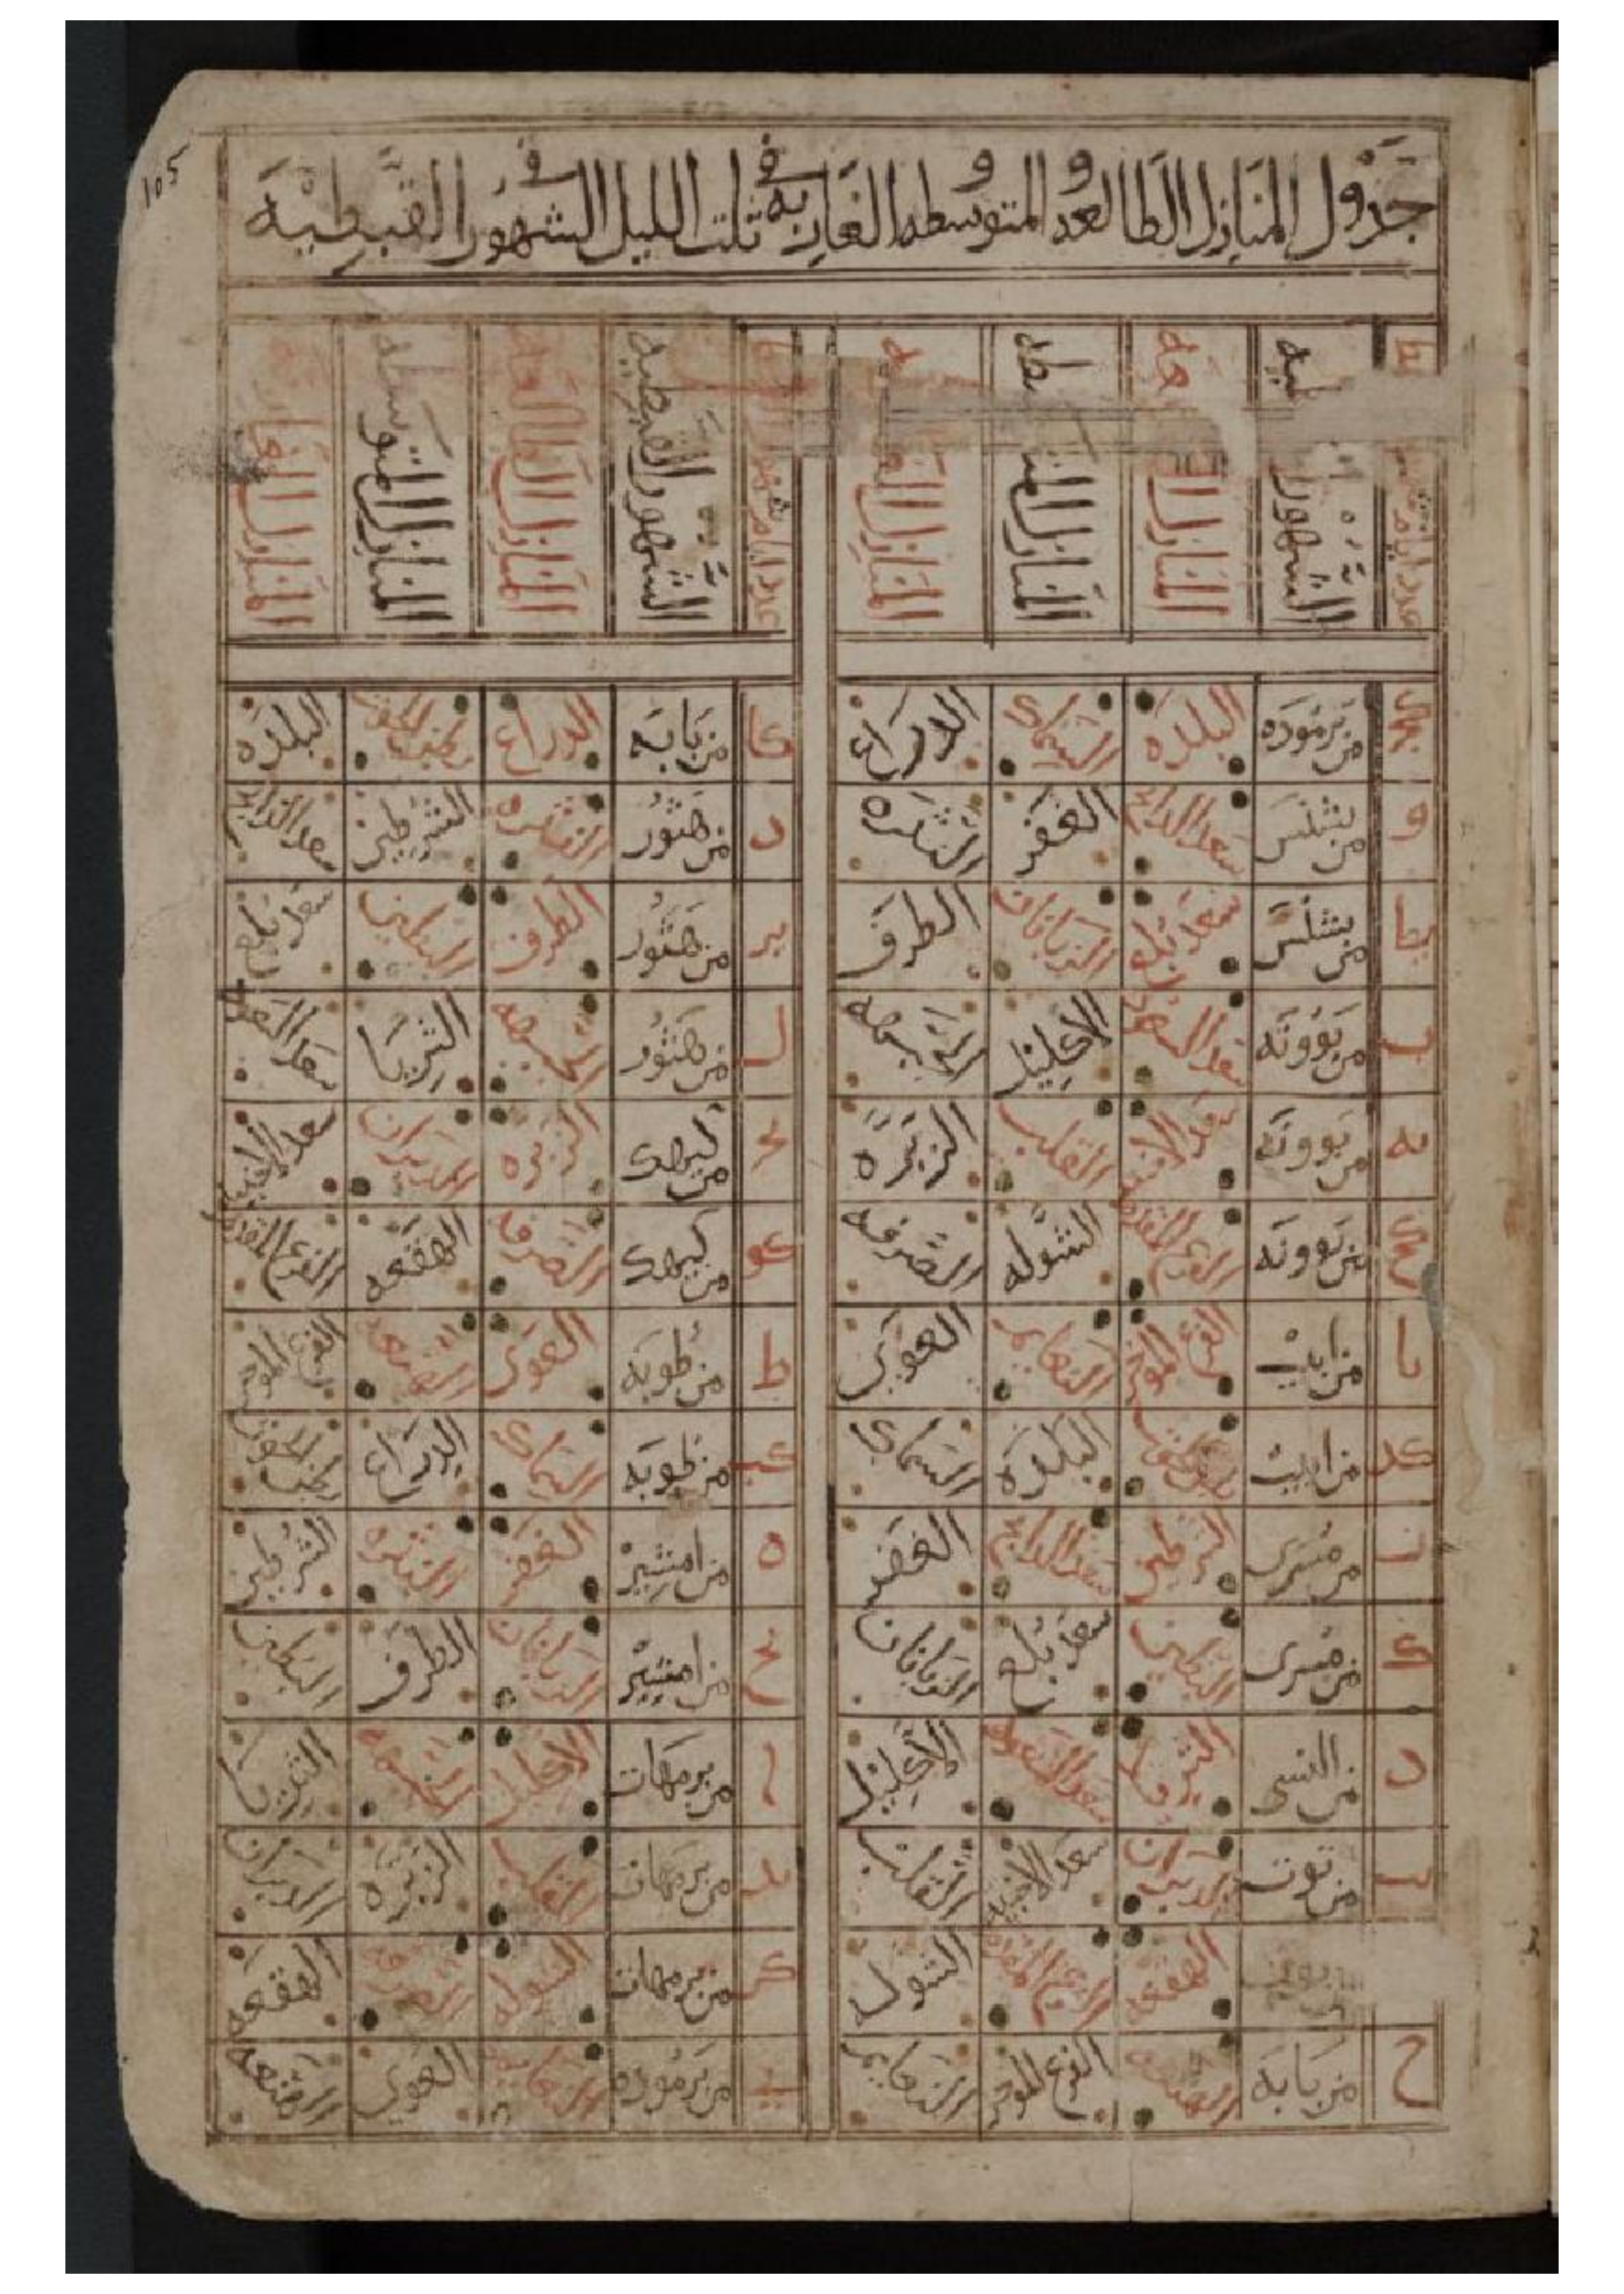 105
جدول المنازل الطالعه و المتوسطه و الغاربه في ثلث الليل في الشهور القبطيه
الشهور المنازل المنازل المنازل
عدد ايام الشهور القبطيه المنازل الطالعه المنازل المتوسطه المنازل
من برموده البلده السماك الدراع
و من بشنس سعد الدابح الغفر النثره
يط من بشنس سعد بلع الزبانان الطرف
ب من بوونه سعد السعود الاكليل الجبهه
يه من بوونه سعد الاخبيه القلب الزبره
كح من بوونه الفرغ المقدم الشوله الصرفه
يا من ابيب الفرغ الموخر النعايم العوى
كد من ابيب بطن الحوت البلده السماك
ز من مسرى الشرطين سعد الدابح الغفر
ك من مسرى البطين سعد بلع الزبانان
د من النسى الثريا سعد السعود الاكليل
يب من توت الدبران سعد الاخبيه القلب
الهقعه الفرغ المقدم الشوله
ح من بابه الهنعه الفرغ الموخر النعايم
كا من بابه الدراع بطن الحوت البلده
د من هتور النثره الشرطين سعد الدابح
يز من هتور الطرف البطين سعد بلع
ل من هتور الجبهه الثريا سعد السعود
يح من كيهك الزبره الدبران سعد الاخبيه
كو من كيهك الصرفه الهقعه الفرغ المقدم
ط من طوبه العوى الهنعه الفرغ الموخر
كب من طوبه السماك الدراع بطن الحوت
ه من امشير الغفر النثره الشرطين
يح من امشير الزبانان الطرف البطين
ا من برمهات الاكليل الجبهه الثريا
يد من برمهات القلب الزبره الدبران
كز من برمهات الشوله الصرفه الهقعه
ي من برموده النعايم العوى الهنعه